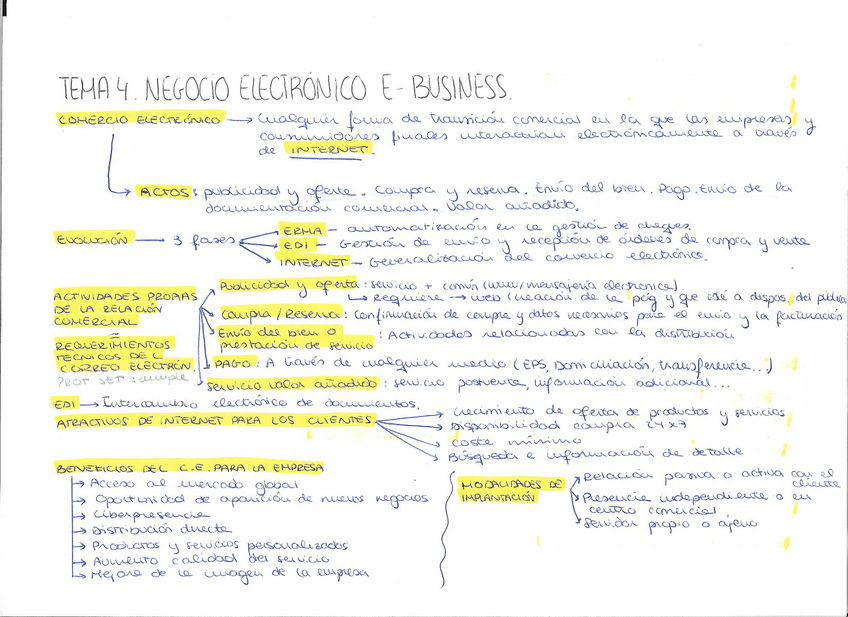 TEMA 4. NEGOCIO ELECTRÓNICO E-BUSINESS.
COMERCIO ELECTRÓNICO → Cualquier forma de transición comercial en la que las empresas y
consumidores finales interactúan electrónicamente a través
de INTERNET.
ACTOS: publicidad y oferta. Compra y reserva. Envío del bien. Pago. Envío de la
documentación comercial. Valor añadido.
EVOLUCIÓN — 3 fases
ERMA — automatización en la gestión de cheques.
EDI — Gestión de envío y recepción de órdenes de compra y venta
INTERNET — Generalización del comercio electrónico.
ACTIVIDADES PROPIAS
DE LA RELACIÓN
COMERCIAL
=
REQUERIMIENTOS
TECNICOS DEL
CORREO ELECTRÓN.
PROT SET = cumple
Publicidad y oferta: servicio + común (www/mensajería electronica)
↳ Requiere → web (creación de la pág y que esté a dispos. del público
Compra/Reserva: Confirmación de compra y datos necesarios para el envío y la facturación
Envío del bien o
prestación de servicio : Actividades relacionadas con la distribución
PAGO: A través de cualquier medio (EPS, Domiciliación, transferencia...)
Servicio valor añadido: servicio postventa, información adicional...
EDI → Intercambio electrónico de documentos.
ATRACTIVOS DE INTERNET PARA LOS CLIENTES
Crecimiento de oferta de productos y servicios
Disponibilidad compra 24x7
Coste mínimo
Búsqueda e información de detalle
BENEFICIOS DEL C.E. PARA LA EMPRESA
→ Acceso al mercado global
→ Oportunidad de aparición de nuevos negocios
→ Ciberpresencia
→ Distribución directa
→ Productos y servicios personalizados
→ Aumento calidad del servicio
→ Mejora de la imagen de la empresa
MODALIDADES DE
IMPLANTACIÓN
Relación pasiva o activa con el
cliente
Presencia independiente o en
centro comercial
Servidor propio o ajeno